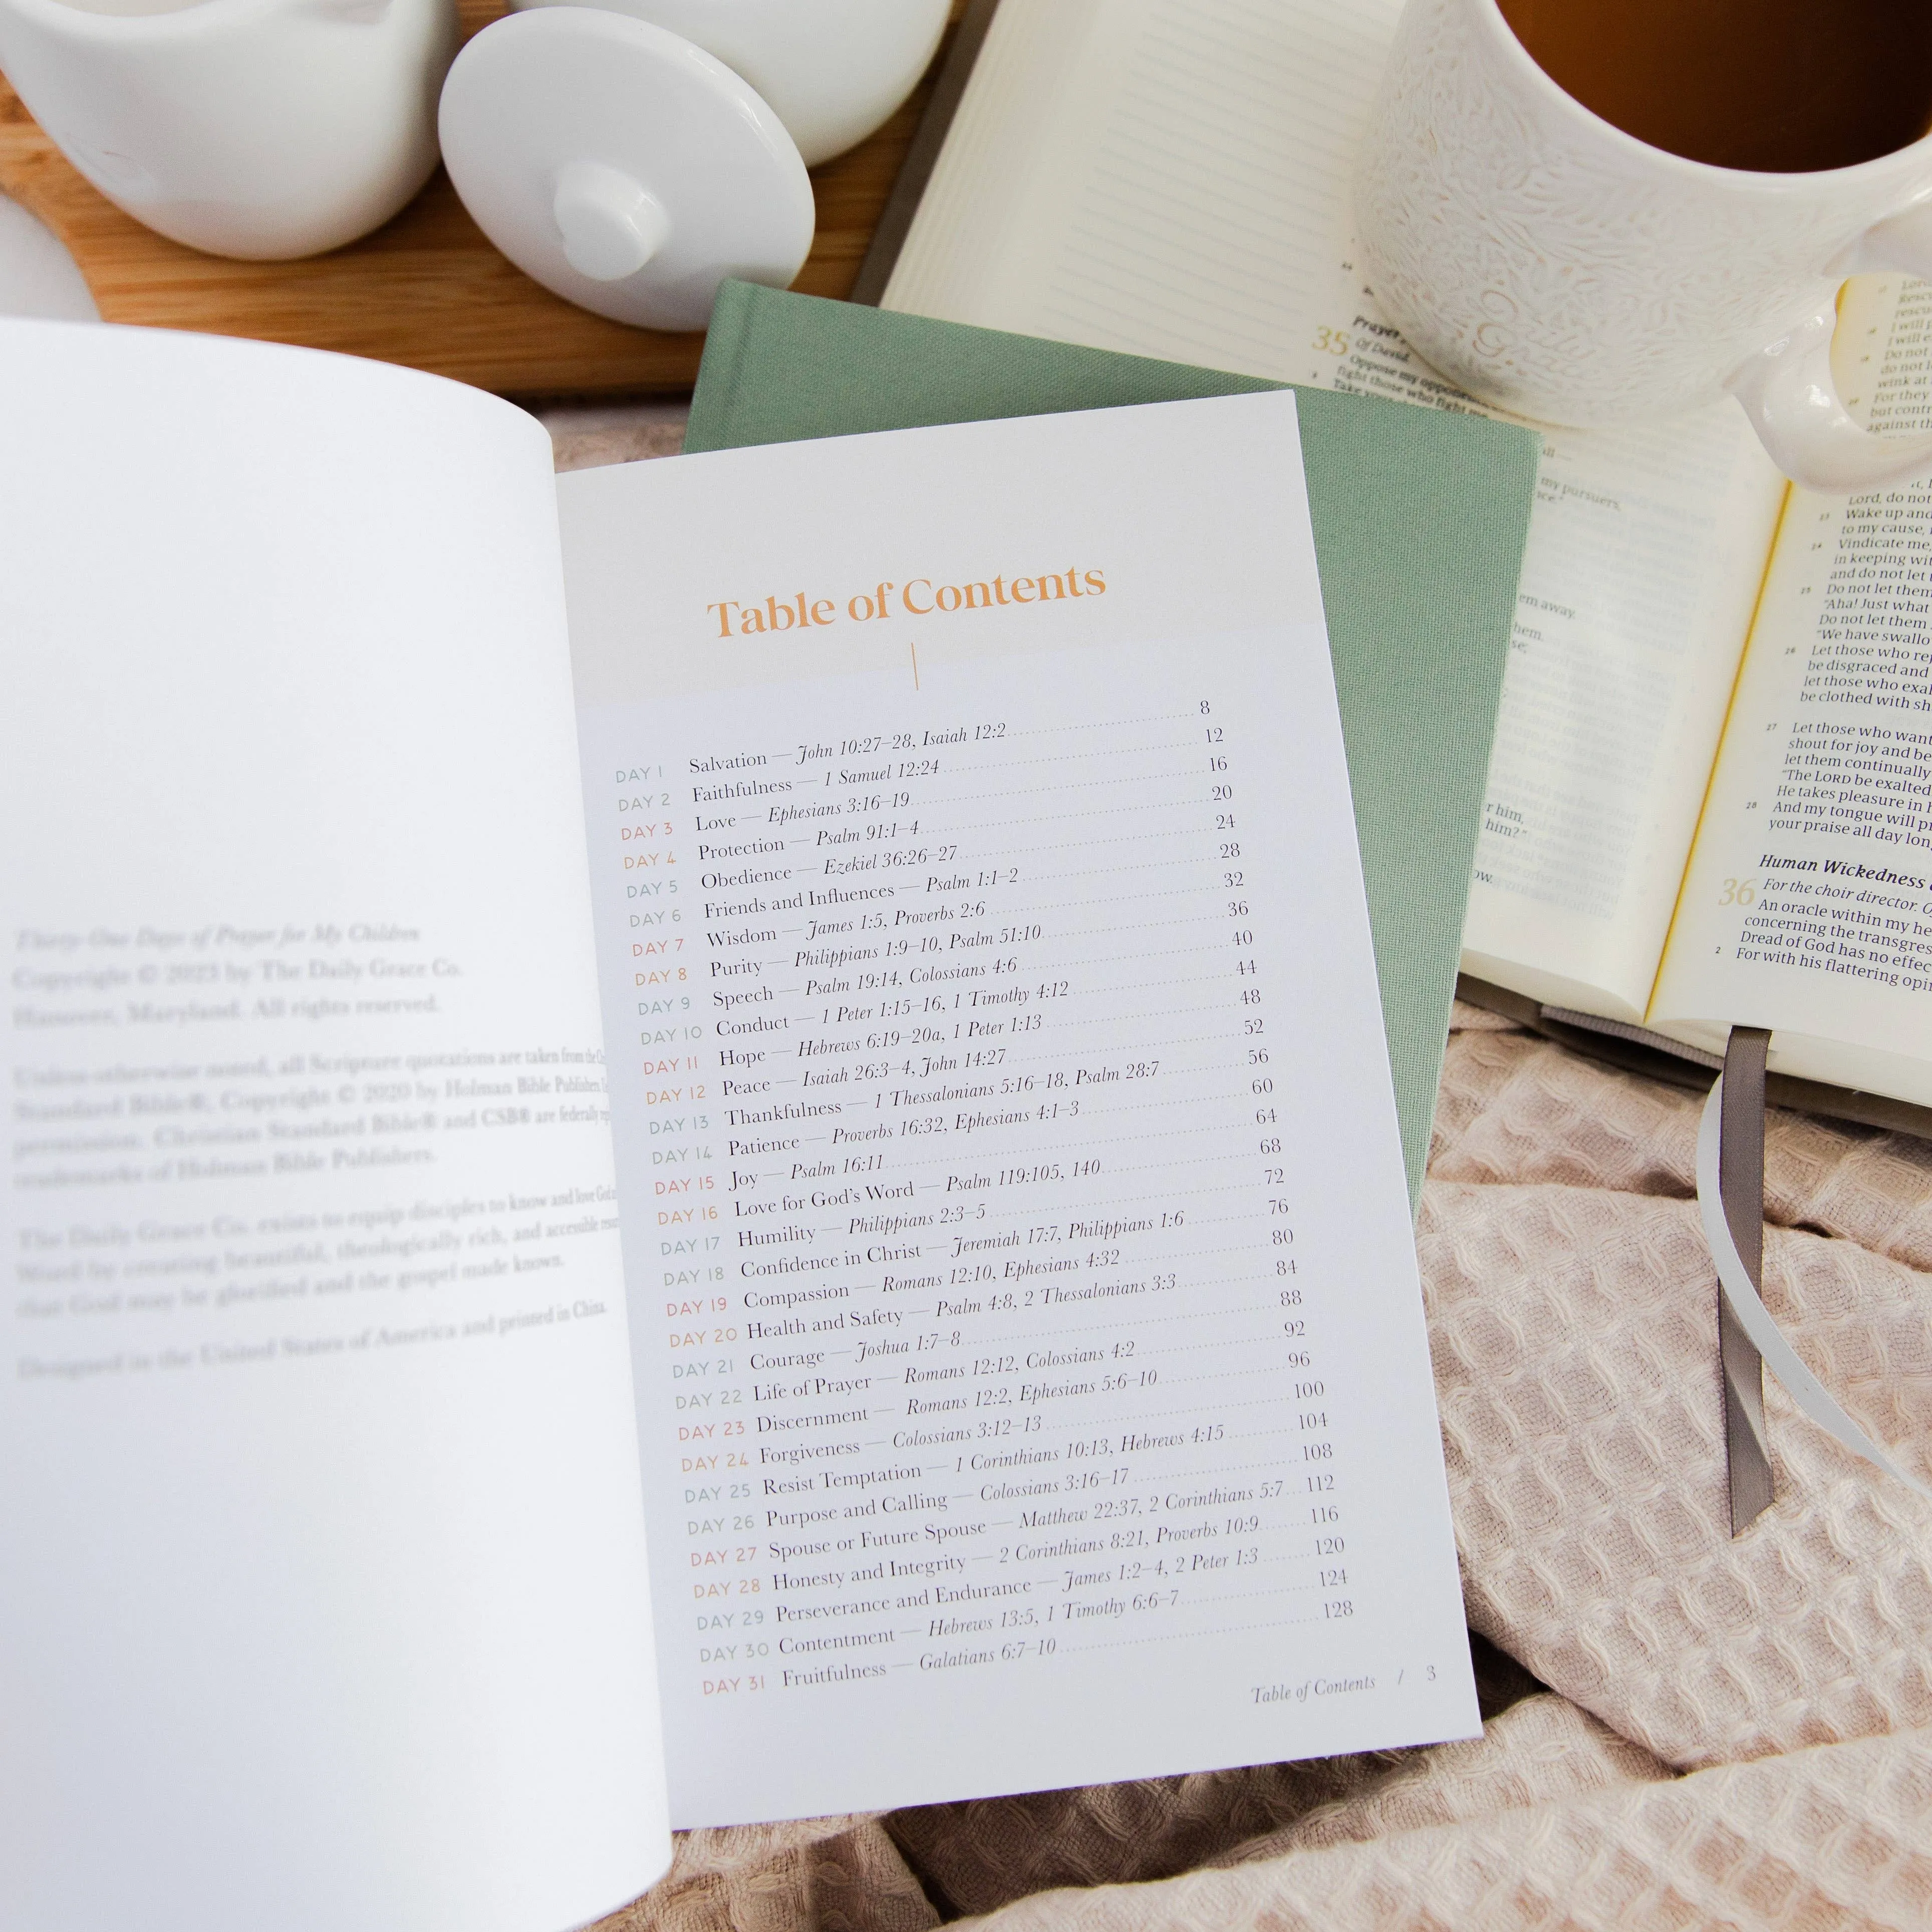 Thirty-One Days of Prayer for My Children
Copyright © 2023 by The Daily Grace Co.
Hanover, Maryland. All rights reserved.
Unless otherwise noted, all Scripture quotations are taken from the
Standard Bible®, Copyright © 2020 by Holman Bible Publishers
permission. Christian Standard Bible® and CSB® are federally
trademarks of Holman Bible Publishers.
The Daily Grace Co. exists to equip disciples to know and love
Word by creating beautiful, theologically rich, and accessible
that God may be glorified and the gospel made known.
Designed in the United States of America and printed in China.
Table of Contents
DAY 1 Salvation — John 10:27–28, Isaiah 12:2 8
DAY 2 Faithfulness — 1 Samuel 12:24 12
DAY 3 Love — Ephesians 3:16–19 16
DAY 4 Protection — Psalm 91:1–4 20
DAY 5 Obedience — Ezekiel 36:26–27 24
DAY 6 Friends and Influences — Psalm 1:1–2 28
DAY 7 Wisdom — James 1:5, Proverbs 2:6 32
DAY 8 Purity — Philippians 1:9–10, Psalm 51:10 36
DAY 9 Speech — Psalm 19:14, Colossians 4:6 40
DAY 10 Conduct — 1 Peter 1:15–16, 1 Timothy 4:12 44
DAY 11 Hope — Hebrews 6:19–20a, 1 Peter 1:13 48
DAY 12 Peace — Isaiah 26:3–4, John 14:27 52
DAY 13 Thankfulness — 1 Thessalonians 5:16–18, Psalm 28:7 56
DAY 14 Patience — Proverbs 16:32, Ephesians 4:1–3 60
DAY 15 Joy — Psalm 16:11 64
DAY 16 Love for God's Word — Psalm 119:105, 140 68
DAY 17 Humility — Philippians 2:3–5 72
DAY 18 Confidence in Christ — Jeremiah 17:7, Philippians 1:6 76
DAY 19 Compassion — Romans 12:10, Ephesians 4:32 80
DAY 20 Health and Safety — Psalm 4:8, 2 Thessalonians 3:3 84
DAY 21 Courage — Joshua 1:7–8 88
DAY 22 Life of Prayer — Romans 12:12, Colossians 4:2 92
DAY 23 Discernment — Romans 12:2, Ephesians 5:6–10 96
DAY 24 Forgiveness — Colossians 3:12–13 100
DAY 25 Resist Temptation — 1 Corinthians 10:13, Hebrews 4:15 104
DAY 26 Purpose and Calling — Colossians 3:16–17 108
DAY 27 Spouse or Future Spouse — Matthew 22:37, 2 Corinthians 5:7 112
DAY 28 Honesty and Integrity — 2 Corinthians 8:21, Proverbs 10:9 116
DAY 29 Perseverance and Endurance — James 1:2–4, 2 Peter 1:3 120
DAY 30 Contentment — Hebrews 13:5, 1 Timothy 6:6–7 124
DAY 31 Fruitfulness — Galatians 6:7–10 128
Table of Contents / 3
Daily
Grace
Prayer
35 Of David.
Oppose my
fight those who fight me
my pursuers,
em away.
hem.
r him,
him?"
Lord, do not
23 Wake up and
to my cause,
24 Vindicate me,
in keeping
and do not let
25 Do not let them
"Aha! Just what
Do not let them
"We have
26 Let those who
be disgraced and
let those who
be clothed with
27 Let those who want
shout for joy and be
let them continually
"The LORD be exalted
He takes pleasure in
28 And my tongue will
your praise all day
Human Wickedness
36 For the choir director.
An oracle within my
concerning the
Dread of God has no
2 For with his flattering